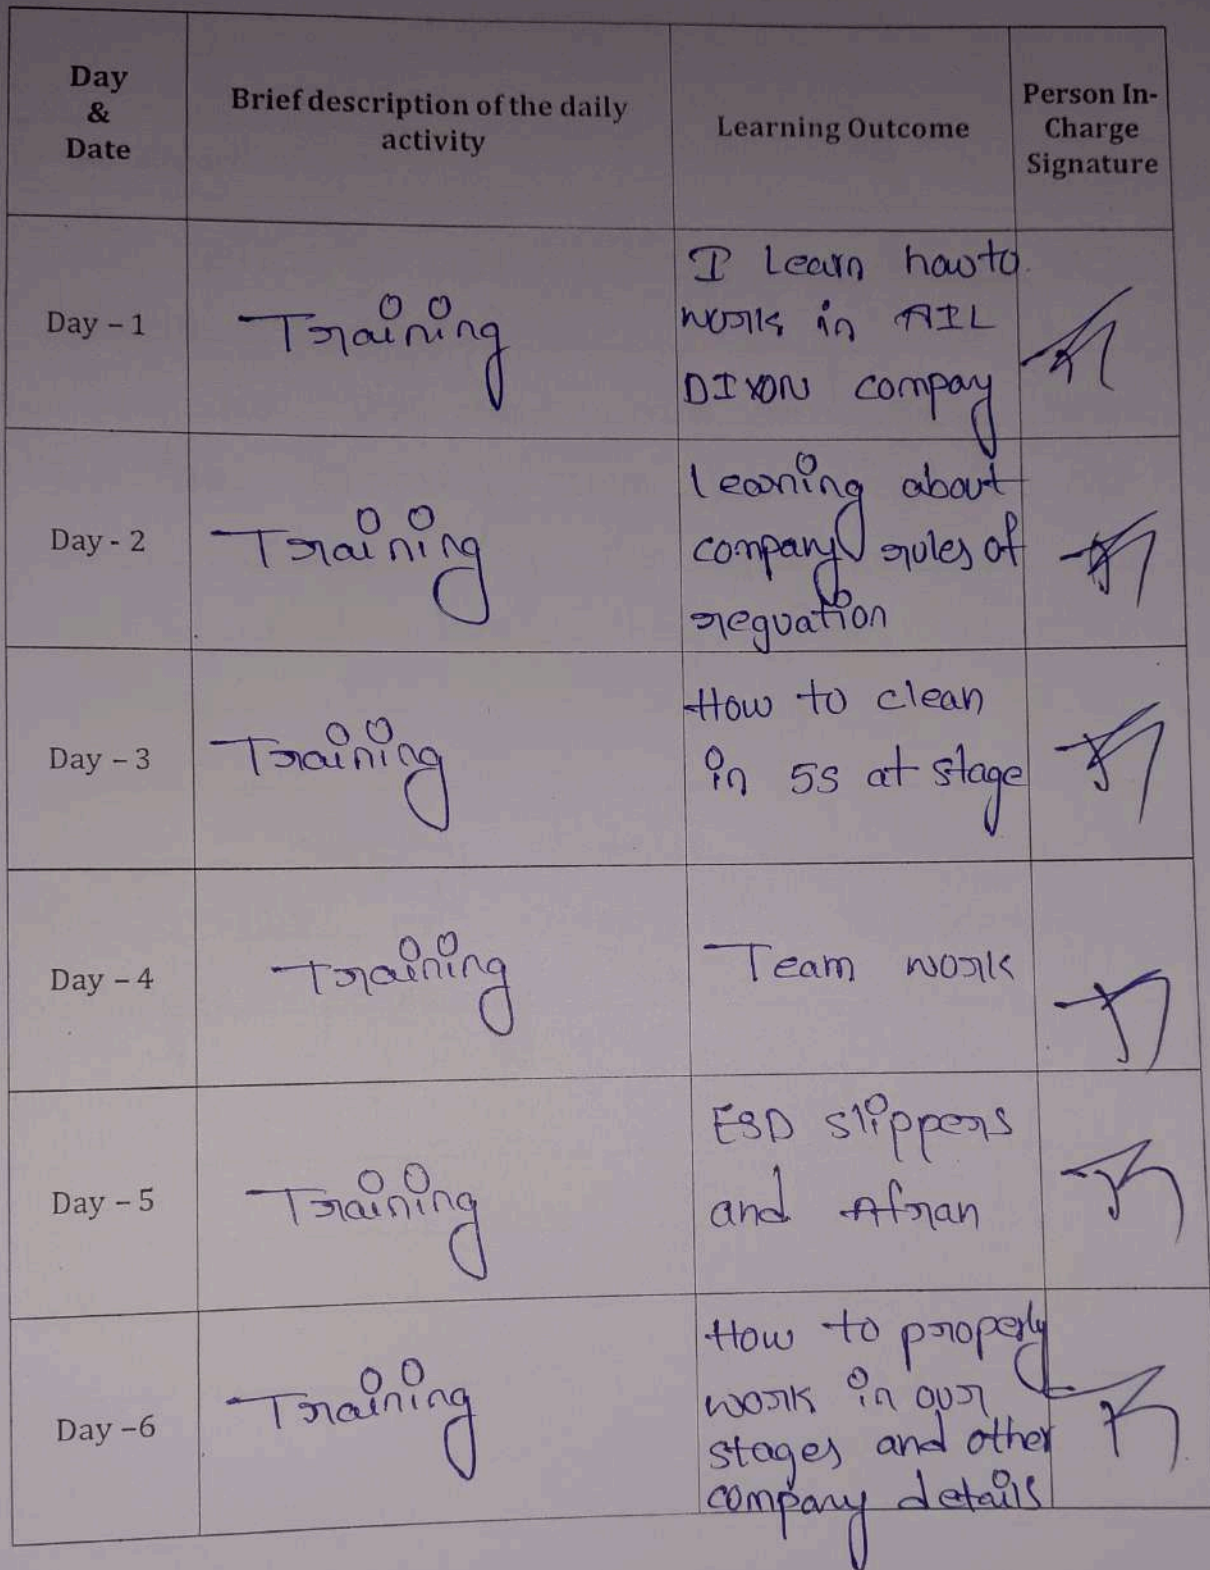 Day
&
Date
Brief description of the daily
activity
Learning Outcome
Person In-
Charge
Signature
Day – 1
Training
I Learn how to
work in AIL
DIXON compay
Day - 2
Training
learning about
company rules of
reguation
Day – 3
Training
How to clean
in 5S at stage
Day – 4
Training
Team work
Day – 5
Training
ESD slippers
and Afran
Day –6
Training
How to properly
work in our
stages and other
company details